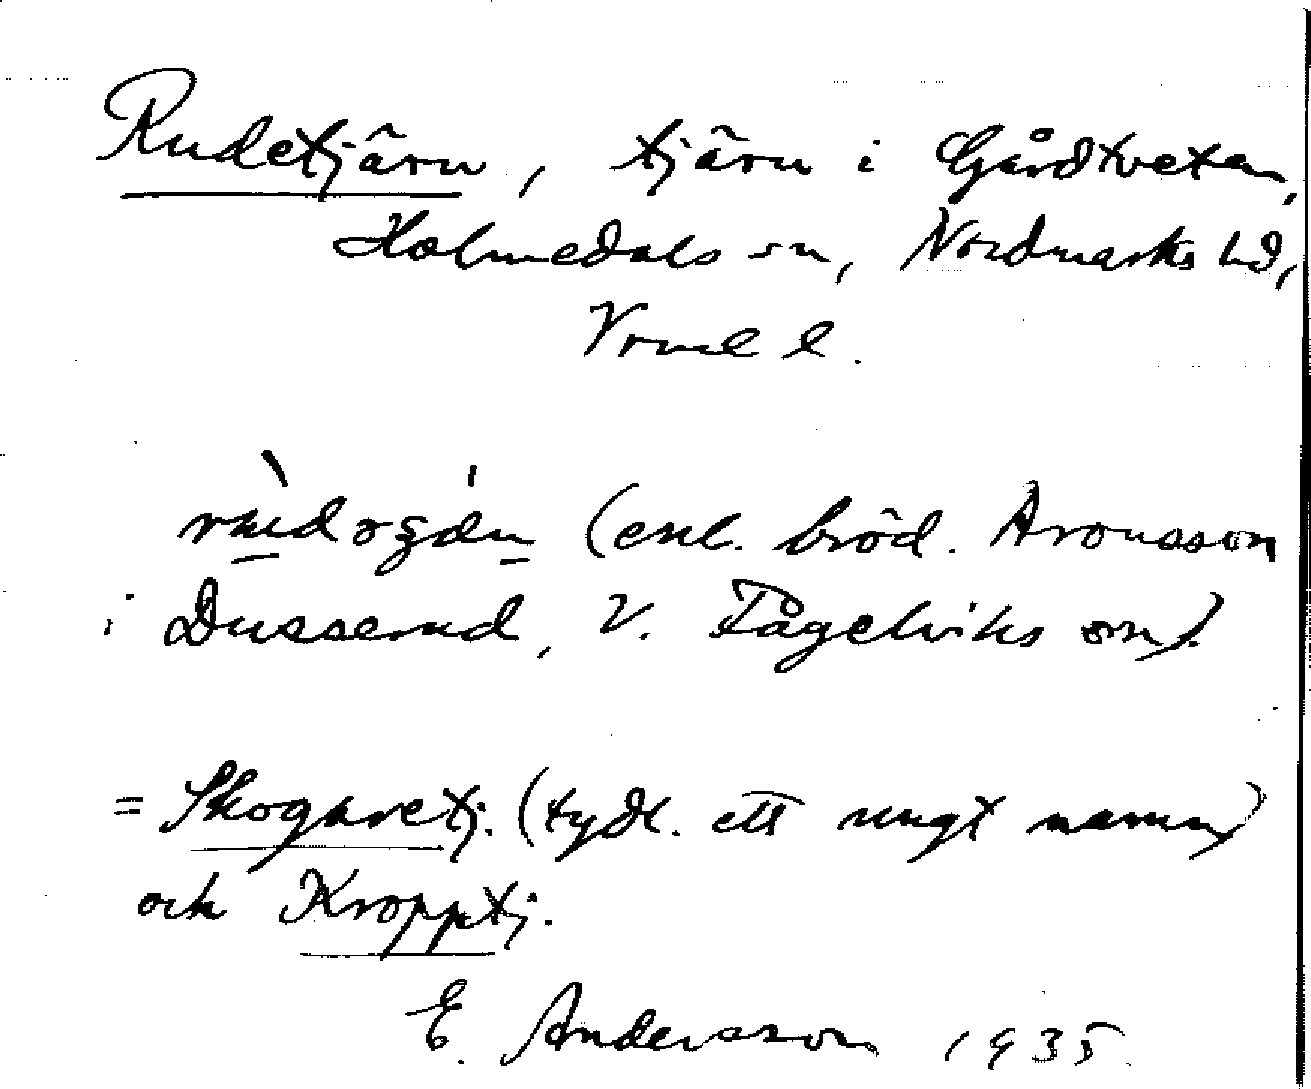 Rudetjärn, tjärn i Gårdtveten,
Holmedals sn, Nordmarks hd,
Vrml l.
(enl. bröd. Aronsson
i Dusserud, V. Fågelviks sn).
= Skogaretj. (tydl. ett ungt namn)
och Kropptj.
E. Andersson 1935